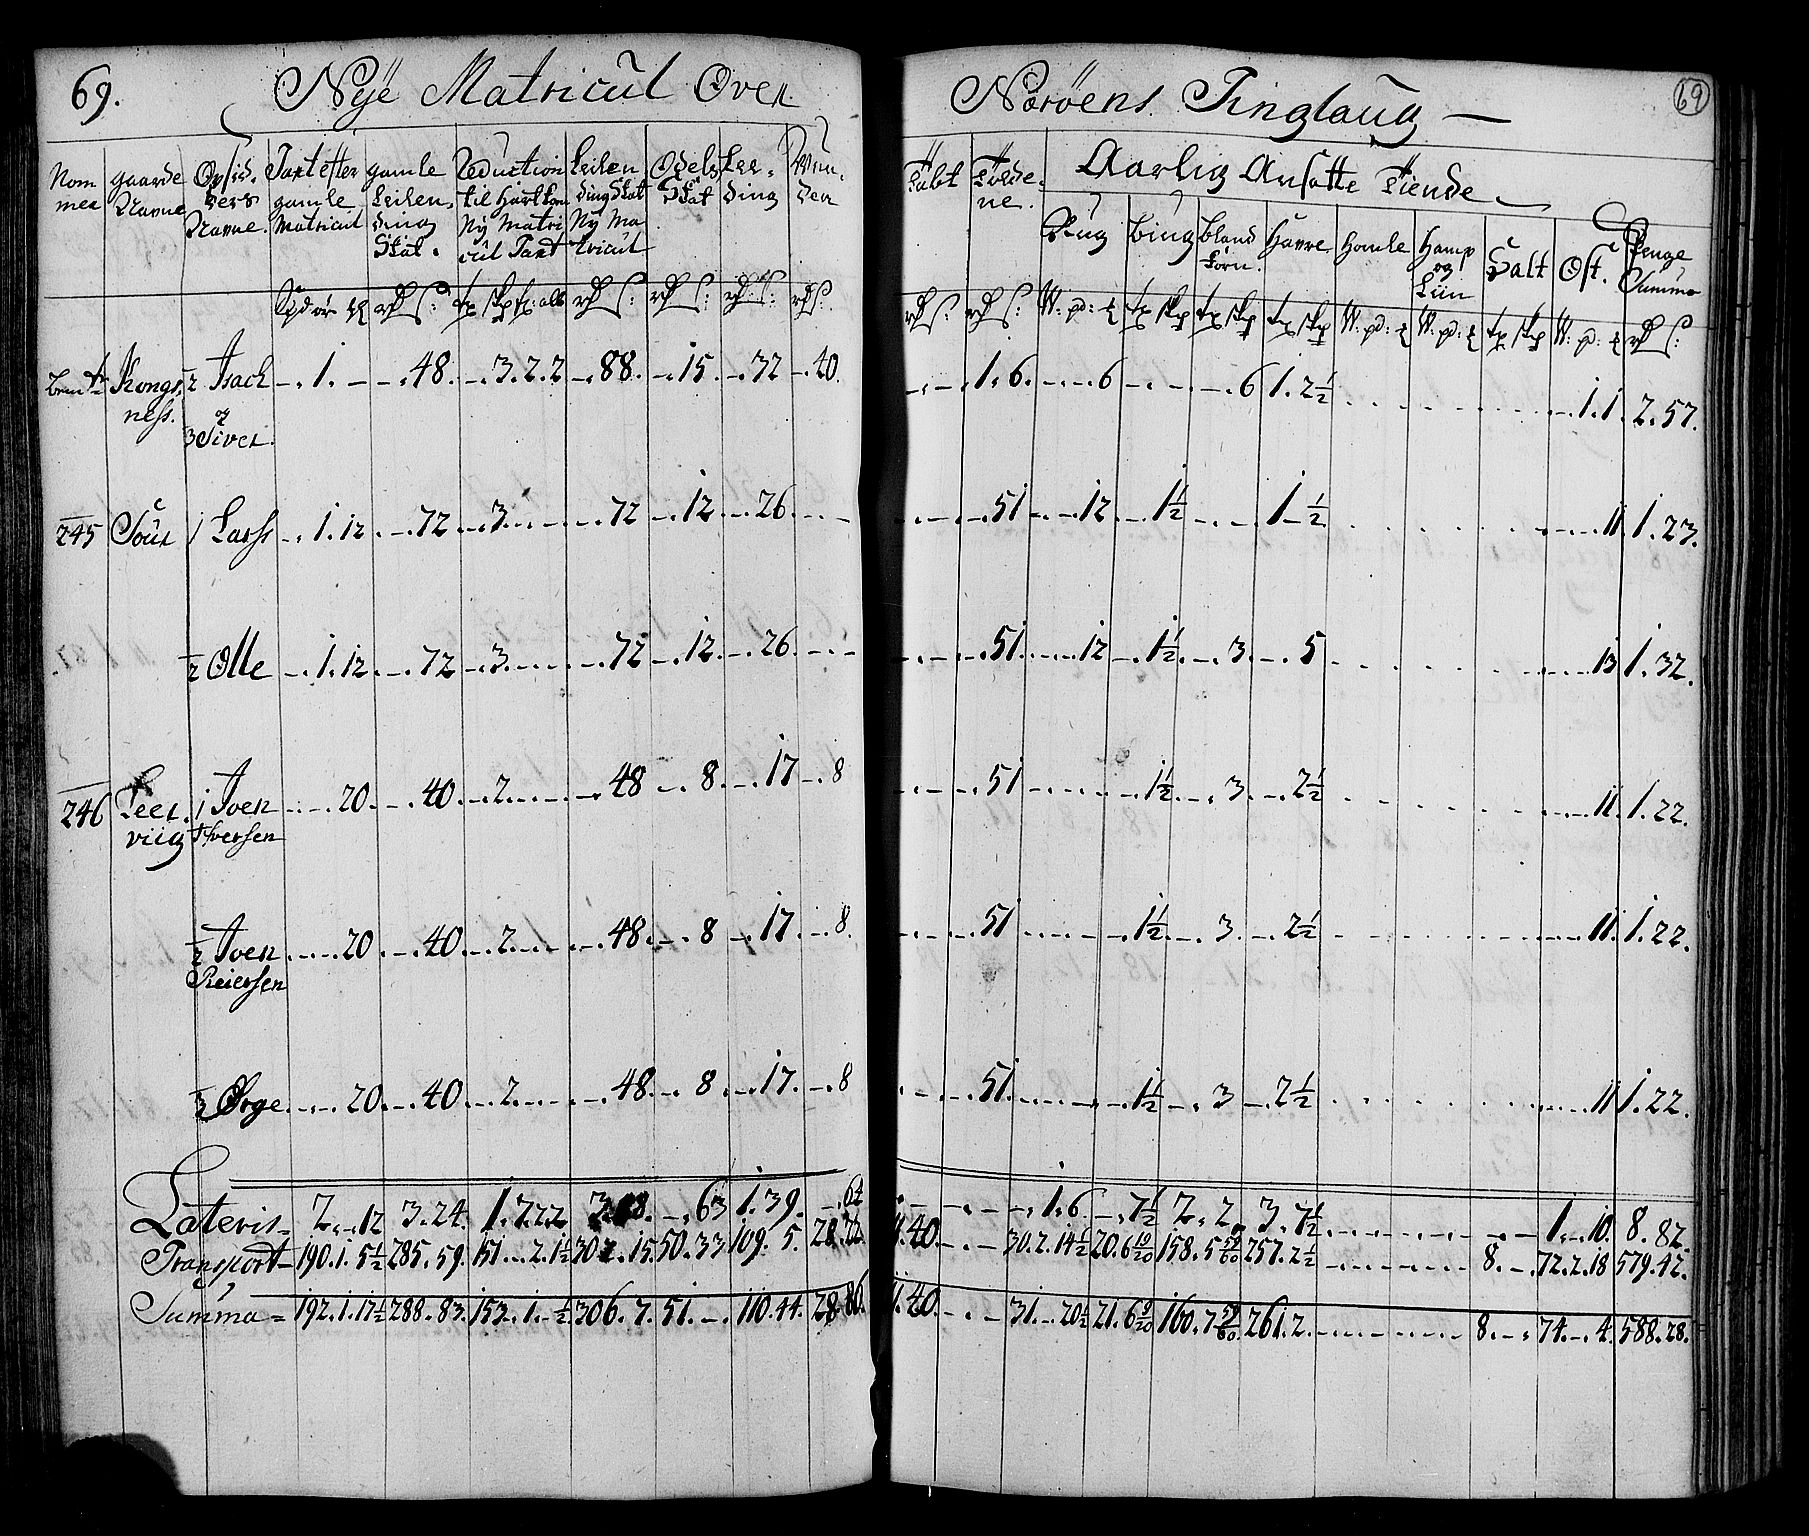 69. Nÿe Matricul Over Nærøens Tinglaug — 69
Nom mer | gaarde Navne | Opsid. ders Navne. | Taxt efter gamle Matricul | gamle Leilen. ding Skat. | Reduction til Hart korn Nÿ Matri cul Taxt | Leilen ding Skat Nÿ Ma tricul | Odels Skat | Lee- ding | | Told ne. | Aarlig Ansatte Tiende
Rug | Biug | bland korn. | Havre | Homle | Hamp og Liin | Salt | Ost. | Penge Summa
Kongs. ness. | 2 Isach og 3 Siver. | 1. | 48. | 3. 2. 2 | 88. | 15. | 32 | 40. | 1. 6. | 6 | | 6 | 1. 2½ | 1. 1. | 2. 57.
245 | Sour | 1 Larss | 1. 12. | 72 | 3. | 72 | 12 | 26. | 51 | 12 | 1½ | | 1 ½ | 11 | 1. 23.
½ Olle | 1. 12. | 72 | 3. | 72 | 12. | 26. | 51. | 12 | 1½ | 3 | 5 | 13 | 1. 32.
246 | Leer. viig | 1 Iver Iversen | 20. | 40. | 2. | 48 | 8 | 17 | 8 | 51 | 1½ | 3 | 2½ | 11. | 1. 22.
½ Iver Reiersen | 20 | 40. | 2. | 48. | 8 | 17. | 8. | 51 | 1½ | 3. | 2½ | 11. | 1. 22.
⅓ Ørge | 20. | 40. | 2. | 48. | 8 | 17. | 8 | 51. | 1½ | 3 | 2½ | 11 | 1. 22.
Lateris= | 2. 12 | 3. 24. | 1. 7. 2 2 | | 63 | 1. 39. | 64 | 1. 6. | 7½ | 2. 2. | 3. 7½ | 1. 10. | 8. 82.
Transport= | 190. 1. 5½ | 285. 59. | 151. 2. 1½ | 302. 15. | 50. 33 | 109. 5. | 28. 22. | 40. | 30. 2. 14½ | 20. 6 19/20 | 158. 5 59/60 | 257. 2½ | 8. | 72. 2. 18 | 579. 42.
Summa = | 192. 1. 17½ | 288. 83. | 153. 1. ½ | 306. 7. | 51. | 110. 44. | 28. 86. | 40. | 31. 20½ | 21. 6 9/20 | 160. 7 59/60 | 261. 2. | 8. | 74. 4. | 588. 28.